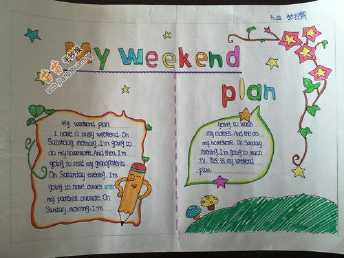 My weekend
plan
My weekend plan
I have a busy weekend. On
Saturday morning, I'm going to
do my homework. And then, I'm
going to visit my grandparents.
On Saturday evening, I'm
going to
my parents
Sunday morning, I'm
going to wash
my clothes. And the do
my homework. On Sunday
evening, I'm going to watch
TV. This is my weekend
plan.